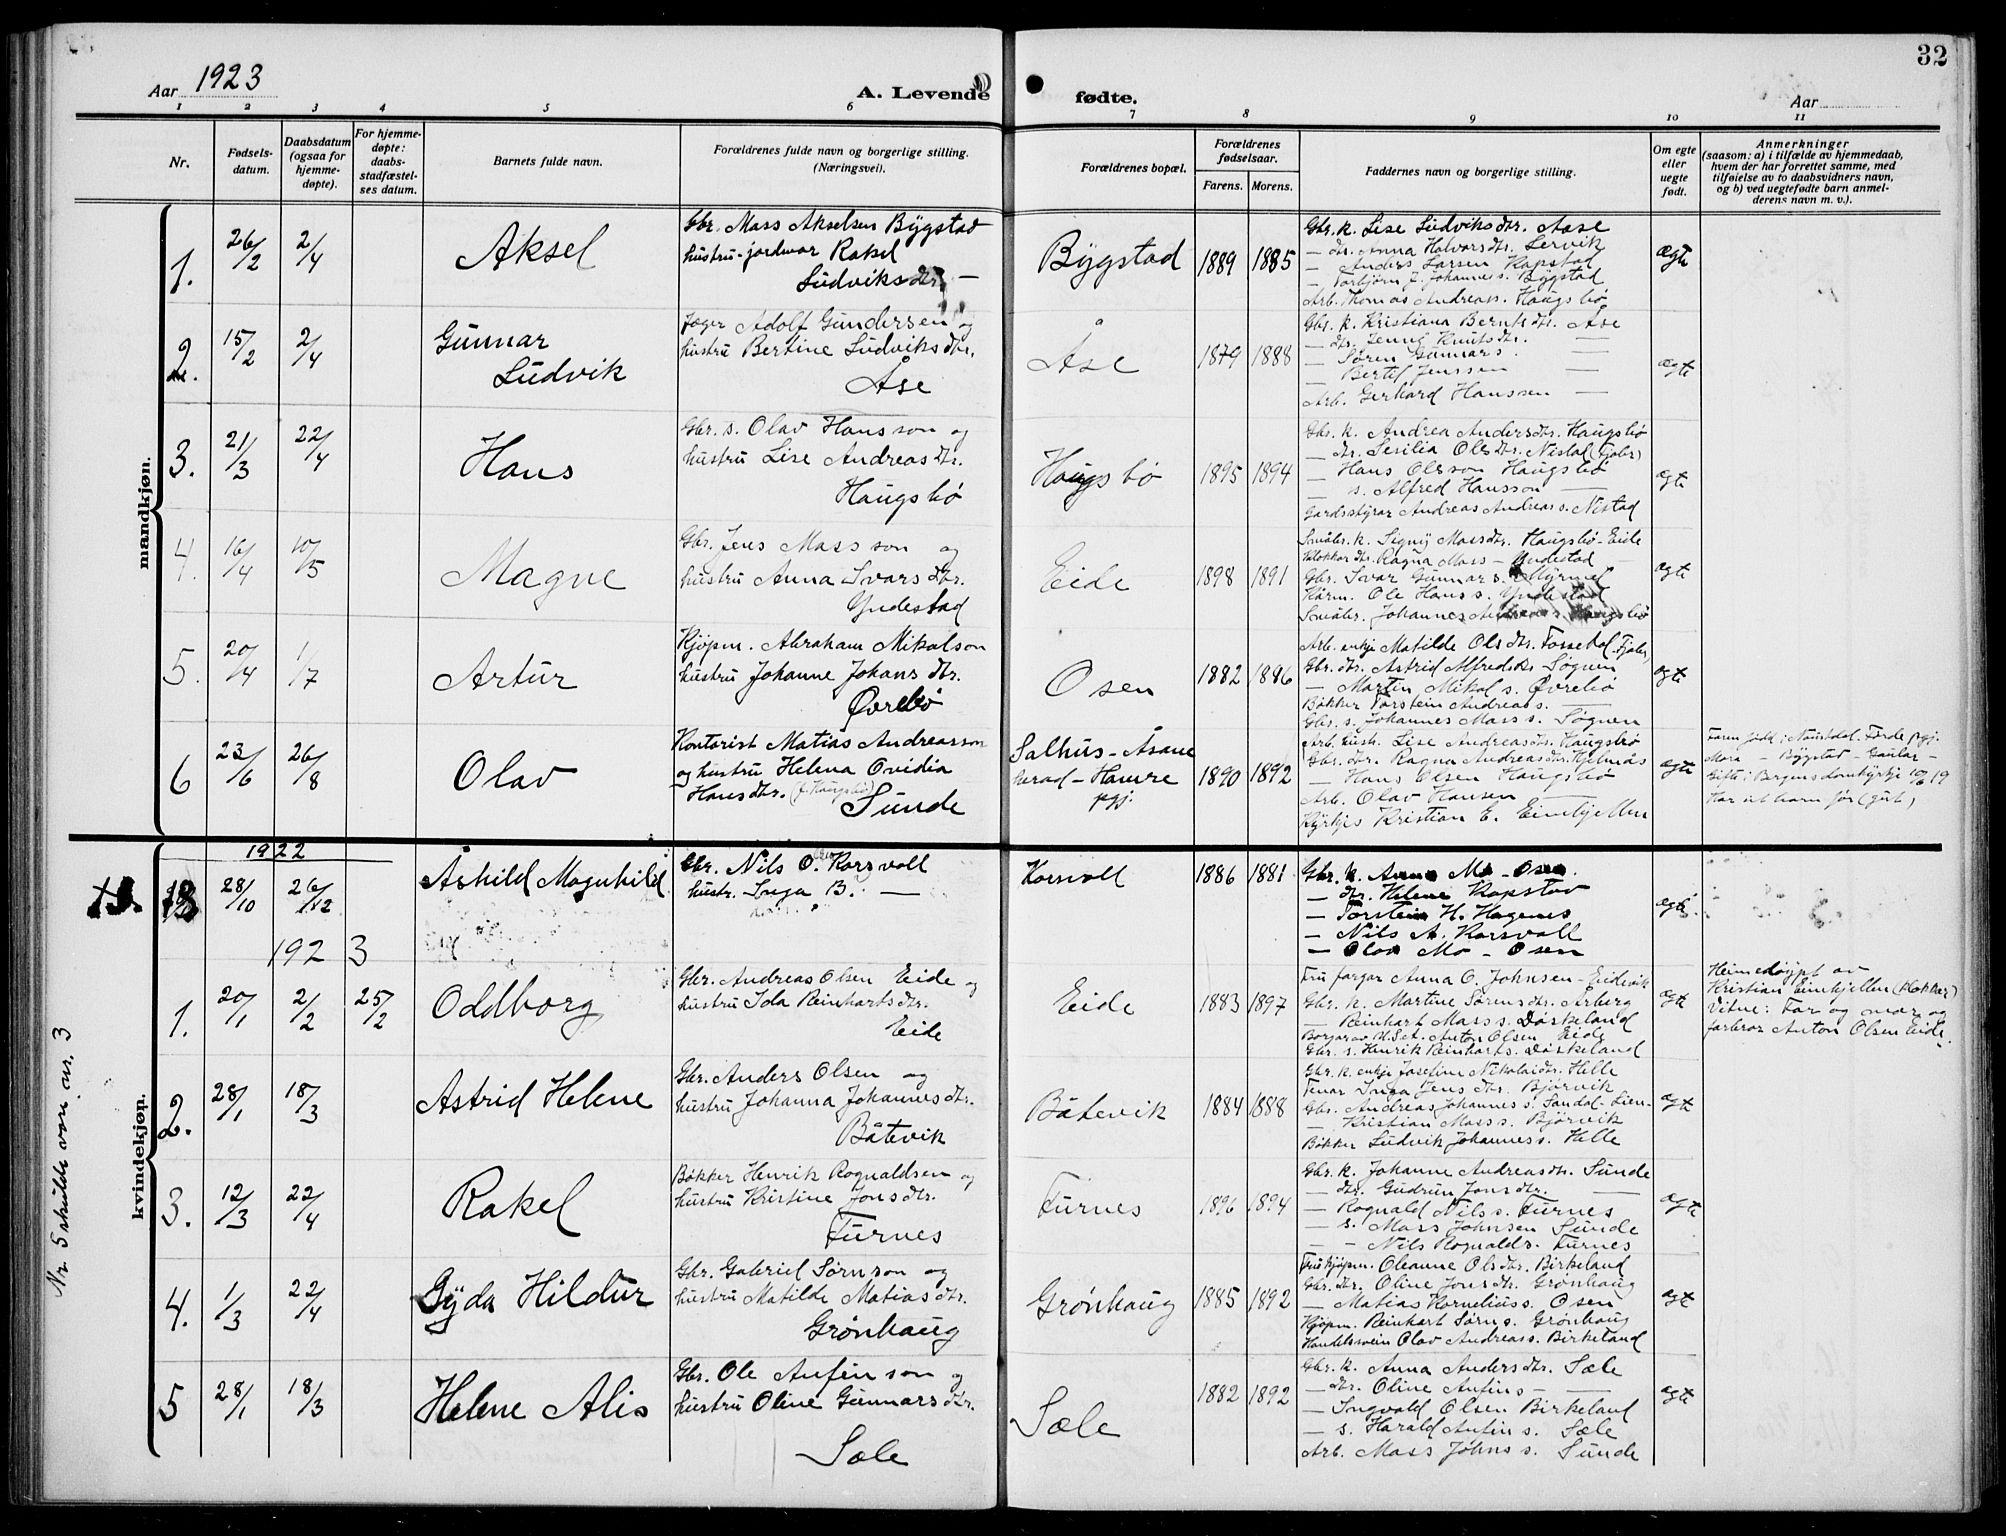 32
Aar 1923
A. Levende fødte.
Aar
1 2 3 4 5 6 7 8 9 10 11
Nr.
Fødsels-
datum.
Daabsdatum
(ogsaa for
hjemme-
døpte).
For hjemme-
døpte:
daabs-
stadfæstel-
ses datum.
Barnets fulde navn.
Forældrenes fulde navn og borgerlige stilling.
(Næringsvei).
Forældrenes bopæl.
Forældrenes
fødselsaar.
Farens. Morens.
Faddernes navn og borgerlige stilling.
Om egte
eller
uegte
født.
Anmerkninger
(saasom: a) i tilfælde av hjemmedaab,
hvem der har forrettet samme, med
tilføielse av to daabsvidners navn,
og b) ved uegtefødte barn anmel-
derens navn m. v.).
mandkjøn.
1. 26/2 2/4 Aksel
Gbr. Mass Akselsen Bÿgstad
hustru - jordmor Rakel
Ludviksdtr. —
Bÿgstad 1889 1885
Gbr. k. Lise Ludviksdtr. Aase
— dtr. Anna Halvorsdtr. Lervik
— Anders Larsen Kapstad
— Torbjørn J. Johanness. Bÿgstad
Arb. Thomas Andreass. Haugsbø
ægte
2. 15/2 2/4 Gunnar
Ludvik
Jæger Adolf Gundersen og
hustru Bertine Ludviksdtr.
Åse
Åse 1879 1888
Gbr. k. Kristiana Berntsdtr. Åse
— dtr. Jenny Knutsdtr. —
— Søren Gunnars. —
— Bertel Jenssen —
Arb. Gerhard Hanssen —
ægte
3. 21/3 22/4 Hans
Gbr. s. Olav Hansson og
hustru Lise Andreasdtr.
Haugsbø
Haugsbø 1895 1894
Gbr. k. Andrea Andersdtr. Haugsbø
— dtr. Sesilia Olsdtr. Nistad (Fjaler)
— Hans Olsson Haugsbø
— s. Alfred Hansson —
Gardsstyrar Andreas Andreass. Nistad
egte
4. 16/4 10/5 Magne
Gbr. Jens Massson og
hustru Anna Ivarsdtr.
Yndestad
Eide 1898 1891
Småbr. k. Signÿ Massdtr. Haugsbø - Eide
Klokkar dtr. Ragna Mass - Yndestad
Gbr. Ivar Gunnars. Mÿrmel
Ole Hanss. Yndestad
Småbr. Johannes Andreas s. Haugsbø
egte
5. 20/4 1/7 Artur
Kjøpm. Abraham Mikalson
hustru Johanne Johansdtr.
Øvrebø
Osen 1882 1886
Arb. enkje Matilde Olsdtr. Fossedal, Fjaler
Gbr. dtr. Astrid Alfredsdtr. Sognen
— Martin Mikals. Øvrebø
Bøkker Torstein Andreas s. —
Gbr. s. Johannes Mass s. Søgnen
egte
6 23/6 26/8 Olav
Kontorist Matias Andreasson
og hustru Helena Ovidia
Hansdtr. (f. Haugsbø)
Sunde
Salhus - Åsane
herad - Hamre
pgj.
1890 1892
Arb. hustr. Lise Andreasdtr. Haugsbø
Gbr. dtr. Ragna Andreasdtr. Hjelmås
— Hans Olsen Haugsbø
Arb. Olav Hansen —
Kÿrkjes Kristian E. Einekjellen
egte
Faren född i Naustdal - Førde pgj.
Mora — Bÿgstad - Gaular -
Gifte i Bergens domkÿrkje 10/6 19
Har eit barn før (gut)
1922
13. 28/10 26/12 Åshild Magnhild
Gbr. Nils O. Korsvoll
hustr. Inga B. —
Korsvoll 1886 1881
Gbr. k. Anna Mo - Osen.
— dtr. Helene Kapstad
— Torstein H. Hagenes
— Nils A. Korsvoll
— Olav Mo - Osen
egte
1923
kvindekjøn.
Nr. 5 skulde von nr. 3
1. 20/1 2/2 25/2 Oddborg
Gbr. Andreas Olsen Eide og
hustru Ida Reinhartsdtr.
Eide
Eide 1883 1897
Fru fargar Anna O. Johnsen - Eidevik
Gbr. k. Martine Sørensdtr. Årberg
— Reinhart Mass s. Dørkeland
Anton Olsen Eide
Gbr. s. Henrik Reinharts. Dørkeland
egte
Heimedøypt av
Kristian Einekjellen (klokkar)
Vitne: Far og mor og
farbror Anton Olsen Eide.
2. 28/1 18/3 Astrid Helene
Gbr. Anders Olsen og
hustru Johanna Johannesdtr.
Båtevik
Båtevik 1884 1888
Gbr. k. enkje Josefine Nikolaidtr. Helle
Tenar Inga Jensdtr. Bjørvik
Gbr. Andreas Johannes s. Sandal - Lien -
— Kristian Mass s. Bjørvik
Bøkker Ludvik Johanness. Helle
egte
3. 12/3 22/4 Rakel
Bøkker Henrik Rognaldsen og
hustru Kristine Jonsdtr.
Furnes
Furnes 1896 1894
Gbr. k. Johanne Andreasdtr. Sunde
— dtr. Gudrun Jonsdtr. —
— Rognald Nils s. Furnes
— s. Mass Johnsen Sunde
— - Nils Rognalds. Furnes
egte
4. 1/3 22/4 Gÿda Hildur
Gbr. Gabriel Sørnson og
hustru Matilde Matiasdtr.
Grønhaug
Grønhaug 1885 1892
Fru kjøpm. Oleanne Olsdtr. Birkeland
Gbr. dtr. Oline Jonsdtr. Grønhaug
— Matias Kornelius s. Osen
Kjøpm. Reinhart Sørns. Grønhaug
Handelssvein Olav Andreass. Birkeland
egte
5 28/1 18/3 Helene Alis
Gbr. Ole Anfinson og
hustru Oline Gunnarsdtr.
Sæle
Sæle 1882 1892
Gbr. k. Anna Andersdtr. Sæle
— dtr. Oline Anfins — —
— Ingvald Olsen Birkeland
— s. Harald Anfins s. Sæle
Arb. Mass Johns s. Sunde
egte